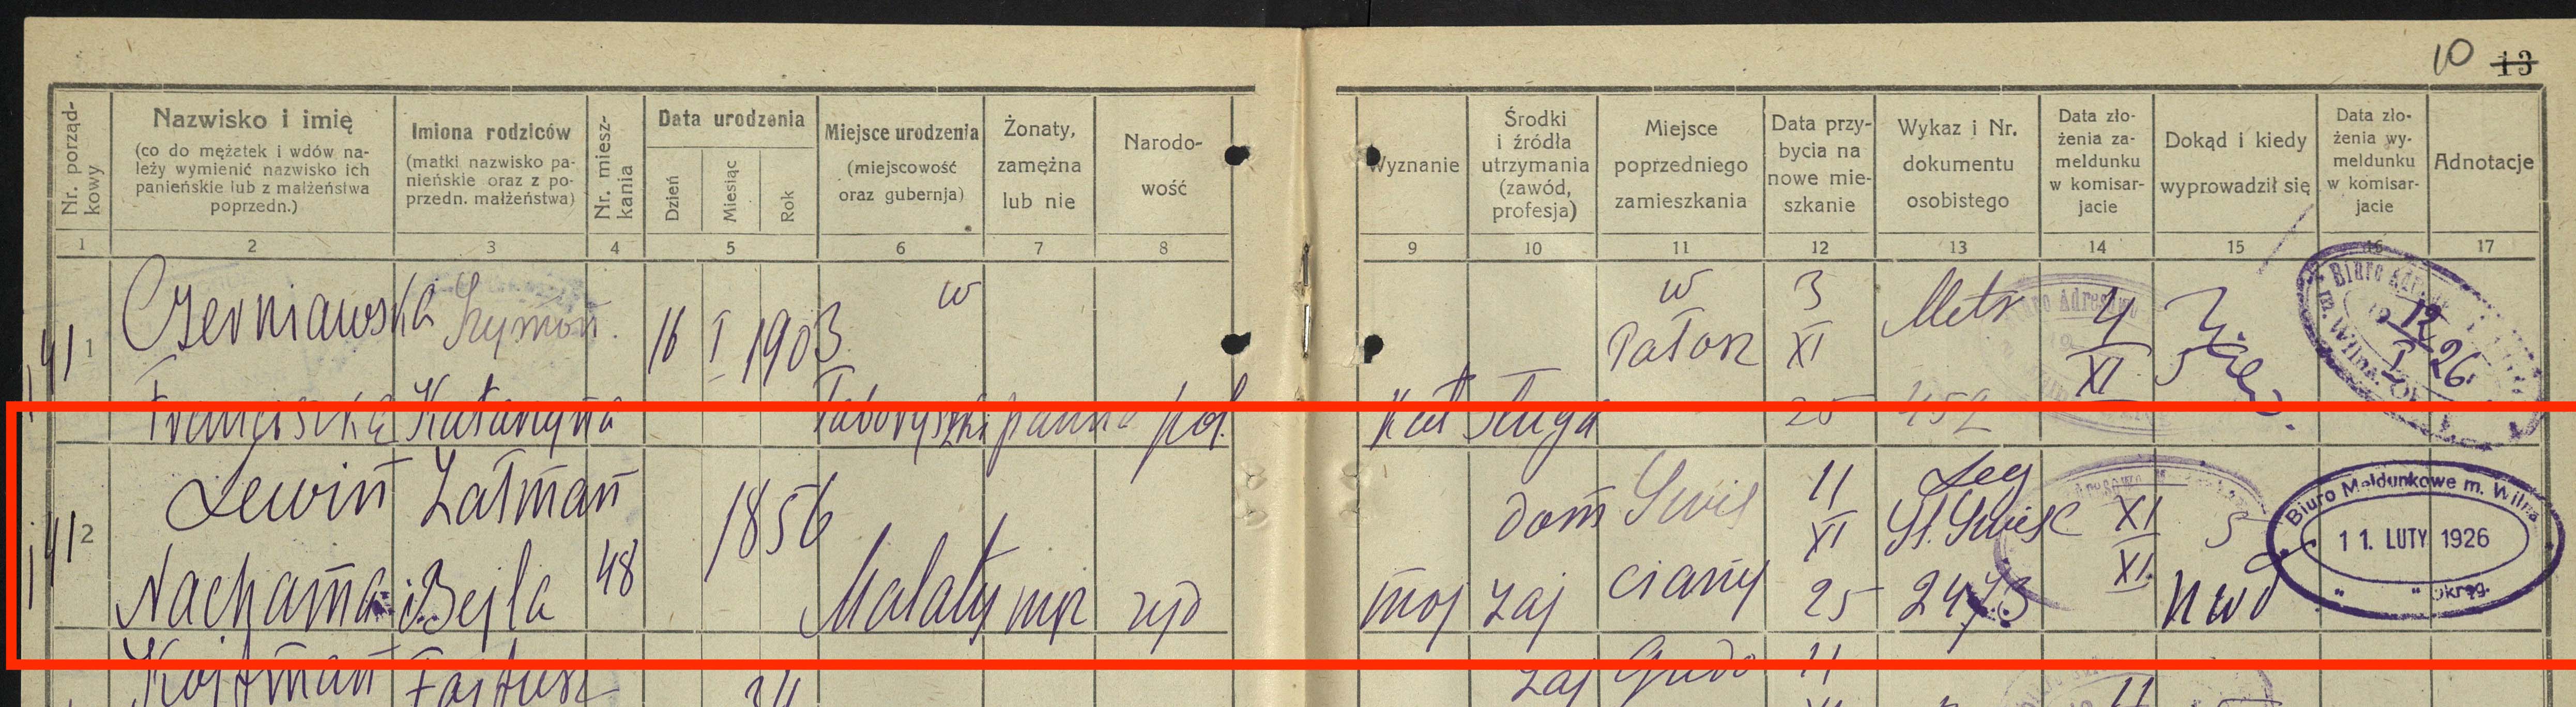 10 13
Nr. porząd-
kowy
Nazwisko i imię
(co do mężatek i wdów na-
leży wymienić nazwisko ich
panieńskie lub z małżeństwa
poprzedn.)
Imiona rodziców
(matki nazwisko pa-
nieńskie oraz z po-
przedn. małżeństwa)
Nr. miesz-
kania
Data urodzenia
Dzień
Miesiąc
Rok
Miejsce urodzenia
(miejscowość
oraz gubernja)
Żonaty,
zamężna
lub nie
Narodo-
wość
Wyznanie
Środki
i źródła
utrzymania
(zawód,
profesja)
Miejsce
poprzedniego
zamieszkania
Data przy-
bycia na
nowe mie-
szkanie
Wykaz i Nr.
dokumentu
osobistego
Data zło-
żenia za-
meldunku
w komisar-
jacie
Dokąd i kiedy
wyprowadził się
Data zło-
żenia wy-
meldunku
w komisar-
jacie
Adnotacje
1 2 3 4 5 6 7 8 9 10 11 12 13 14 15 16 17
141 1 Czerniawska Szymon 16 I 1903 w
Franciszka Katarzyna Taboryszki panna pol.
kat sługa
w
3
XI
25
Metr
452
4
XI
12
I 26
141 2 Lewin Załman 48 1856
Nachama Bejla Malaty męż żyd
moj dom
zaj
Swię
ciany
11
XI
25
Leg
St. Święc
2473
XI
XI
5
Biuro Meldunkowe m. Wilna
11. LUTY 1926
" " Okręg.
zaj
11
11